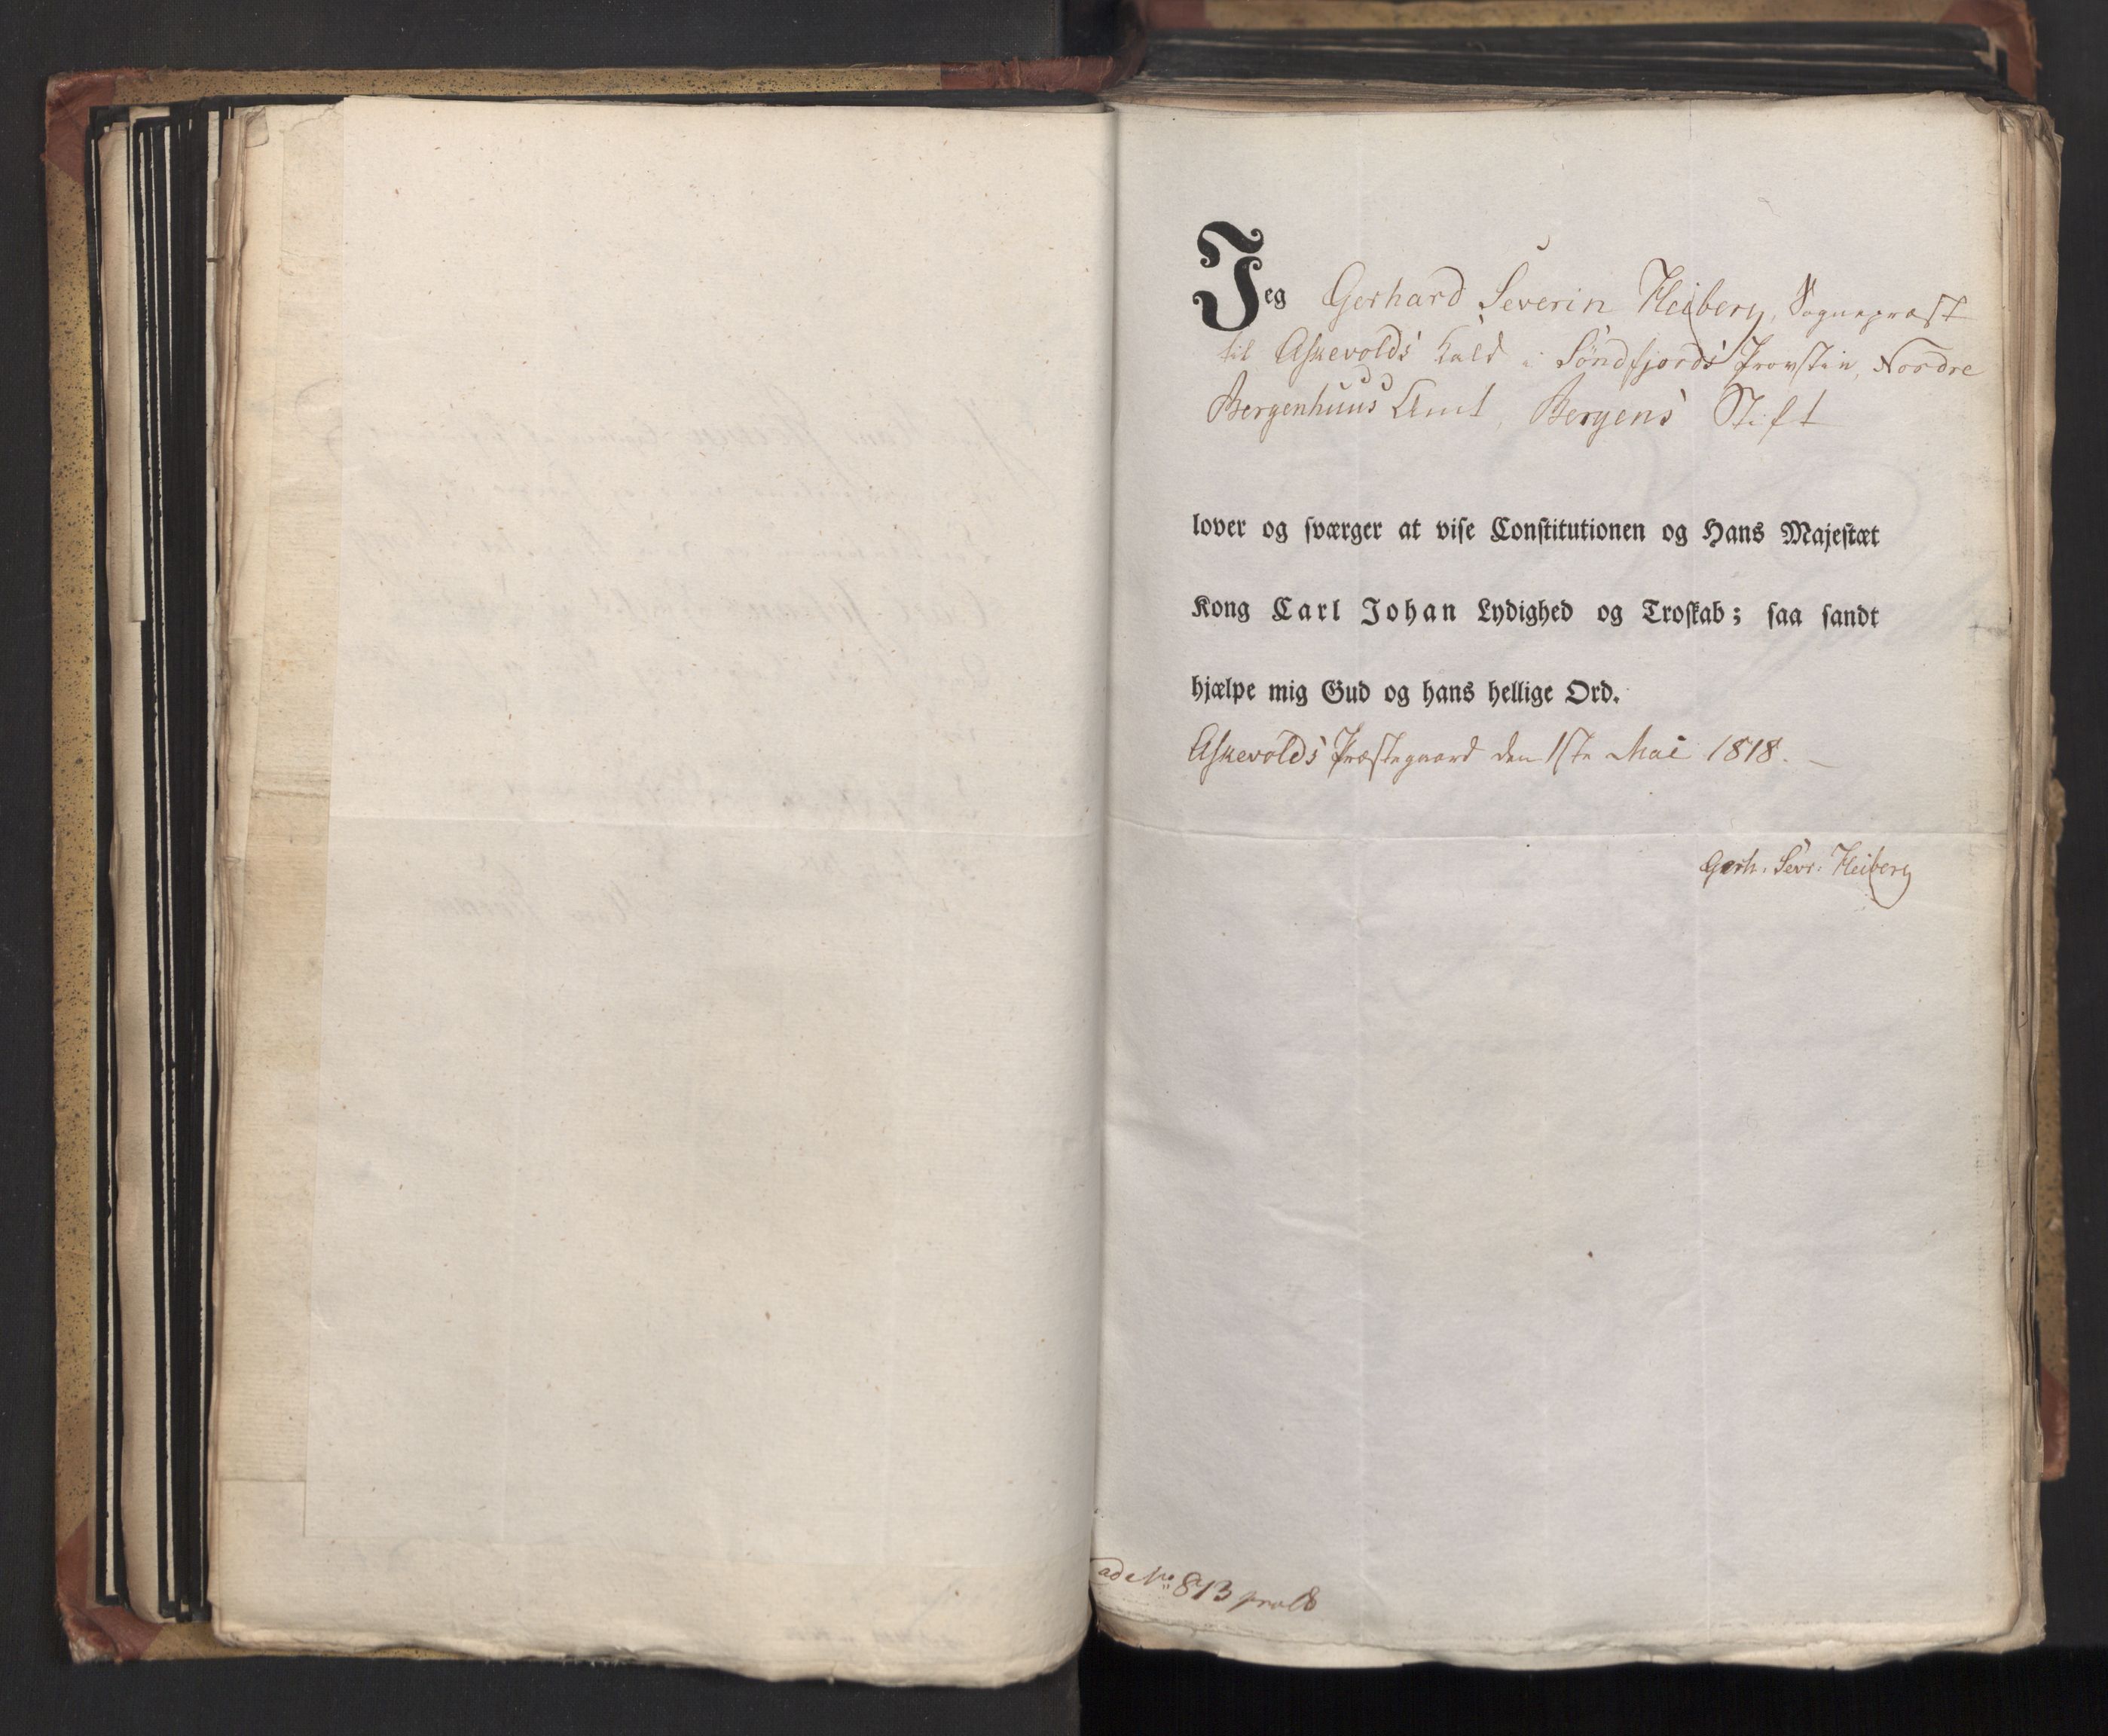 Jeg Gerhard Severin Heiberg, Sognepræst
til Askevolds Kald i Søndfjords Provstie, Nordre
Bergenhuus Amt, Bergens Stift
lover og sværger at vise Constitutionen og Hans Majestæt
Kong Carl Johan Lydighed og Troskab; saa sandt
hjælpe mig Gud og hans hellige Ord.
Askevolds Præstegaard den 1ste Mai 1818.
Gerh. Sevr. Heiberg
ad No 873